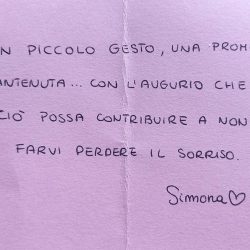 N PICCOLO GESTO, UNA PROM
ANTENUTA... CON L'AUGURIO CHE
CIÒ POSSA CONTRIBUIRE A NON
FARVI PERDERE IL SORRISO.
Simona♡